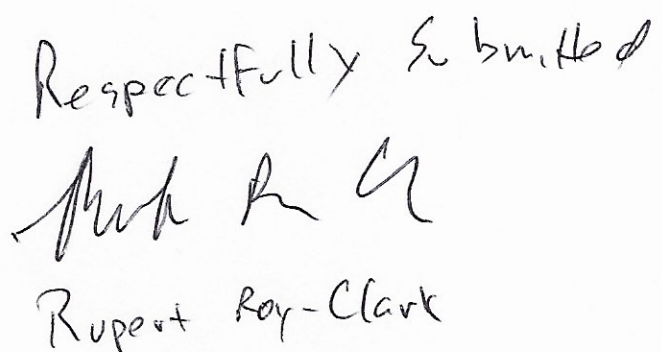 Respectfully Submitted
Rupert Roy-Clark